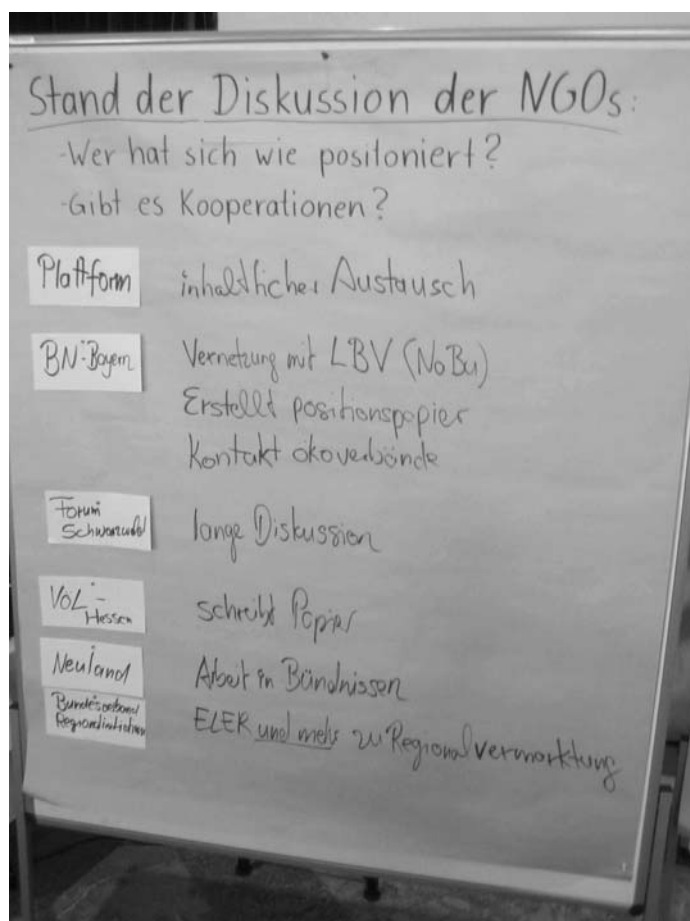 Stand der Diskussion der NGOs:
-Wer hat sich wie positoniert?
-Gibt es Kooperationen?
Plattform inhaltlicher Austausch
BN-Bayern Vernetzung mit LBV (NaBu)
Erstellt positionspapier
Kontakt ökoverbände
Forum
Schwarzwald lange Diskussion
VÖL-
Hessen schreibt Papier
Neuland Arbeit in Bündnissen
Bundesverband
Regionalinitiativen ELER und mehr zu Regionalvermarktung